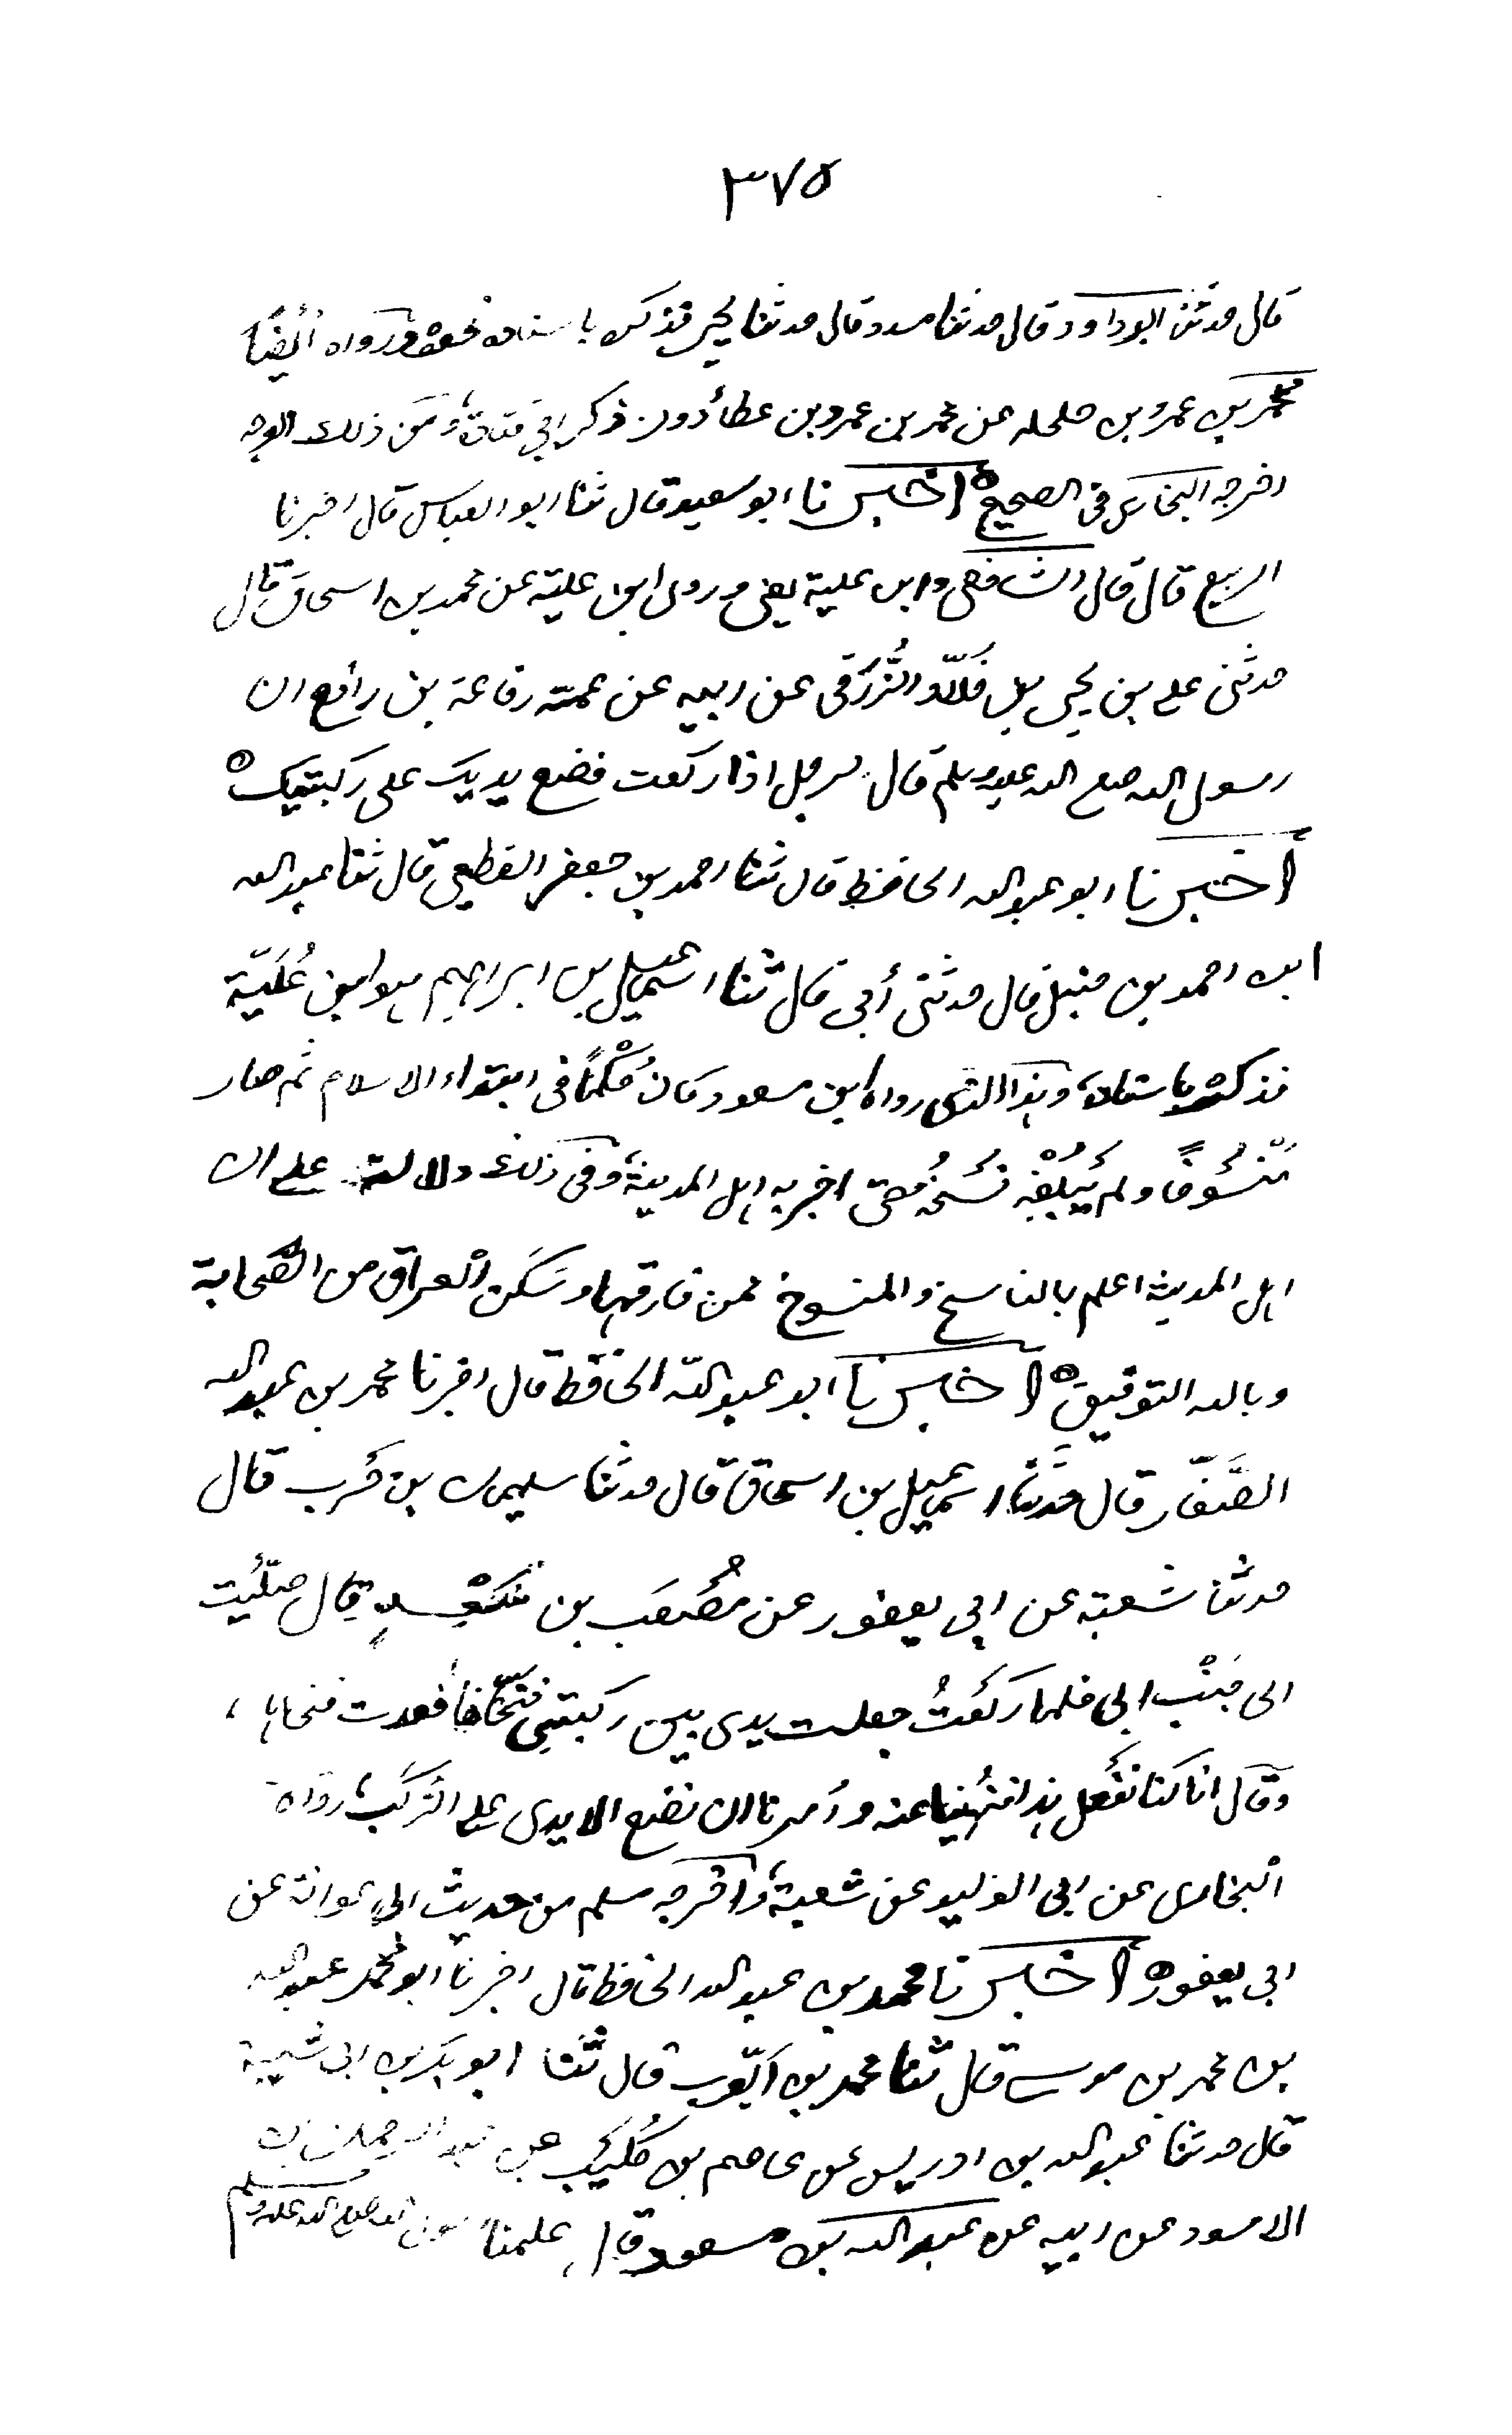 ٣٧٥
قال حدثنا ابوداود قال حدثنا مسدد قال حدثنا يحيى فذكره باسناده نحوه ورواه ايضًا
محمد بن عمرو بن حلحله عن محمد بن عمرو بن عطاء دون ذكر ابي قتادة ومن ذلك الوجه
اخرجه البخاري في الصحيح ه أخبرنا ابو سعيد قال ثنا ابو العباس قال اخبرنا
الربيع قال قال الشافعي وابن علية يعني وروى ابن عليّة عن محمد بن اسحاق قال
حدثني علي بن يحيى بن خلّاد الزُّرَقي عن ابيه عن عمّه رفاعة بن رافع ان
رسول الله صلى الله عليه وسلم قال لرجل اذا ركعت فضع يديك على ركبتيك ه
أخبرنا ابو عبد الله الحافظ قال ثنا احمد بن جعفر القطيعي قال ثنا عبد الله
ابن احمد بن حنبل قال حدثني أبي قال ثنا اسمعيل بن ابراهيم هو ابن عُلَيّة
فذكره باسناده وهذا الذي رواه ابن مسعود كان حُكْمًا في ابتداء الاسلام ثم صار
مَنْسُوخًا ولم يَبْلُغْه نَسْخُه حتى اخبر به اهل المدينة وفي ذلك دلالة على ان
اهل المدينة اعلم بالناسخ والمنسوخ ممن فارقها وسَكَن العراق من الصَّحابة
وبالله التوفيق ه أخبرنا ابو عبد الله الحافظ قال اخبرنا محمد بن عبد الله
الصَّفّار قال حدثنا اسمعيل بن اسحاق قال حدثنا سليمان بن حَرب قال
حدثنا شعبة عن ابي يعفور عن مُصْعَب بن سَعْدٍ قال صلّيت
الى جَنْب ابي فلما ركَعتُ جعلت يدي بين ركبتي فنحّاها فعدت فنحاها،
وقال انا كنا نفعل هذا فنُهينا عنه وأُمرنا ان نضع الايدي على الرُّكَب، رواه
البخاري عن ابي الوليد عن شعبة، واخرجه مسلم من حديث ابي عوانة عن
ابي يعفور ه أخبرنا محمد بن عبد الله الحافظ قال اخبرنا ابو محمد عبد الله
بن محمد بن موسى قال ثنا محمد بن ايّوب قال ثنا ابو بكر بن ابي شيبة
قال حدثنا عبد الله بن ادريس عن عاصم بن كُلَيْب عن عبد الرحمن بن
الاسود عن ابيه عن عبد الله بن مسعود قال علمنا رسول الله صلى الله عليه وسلم